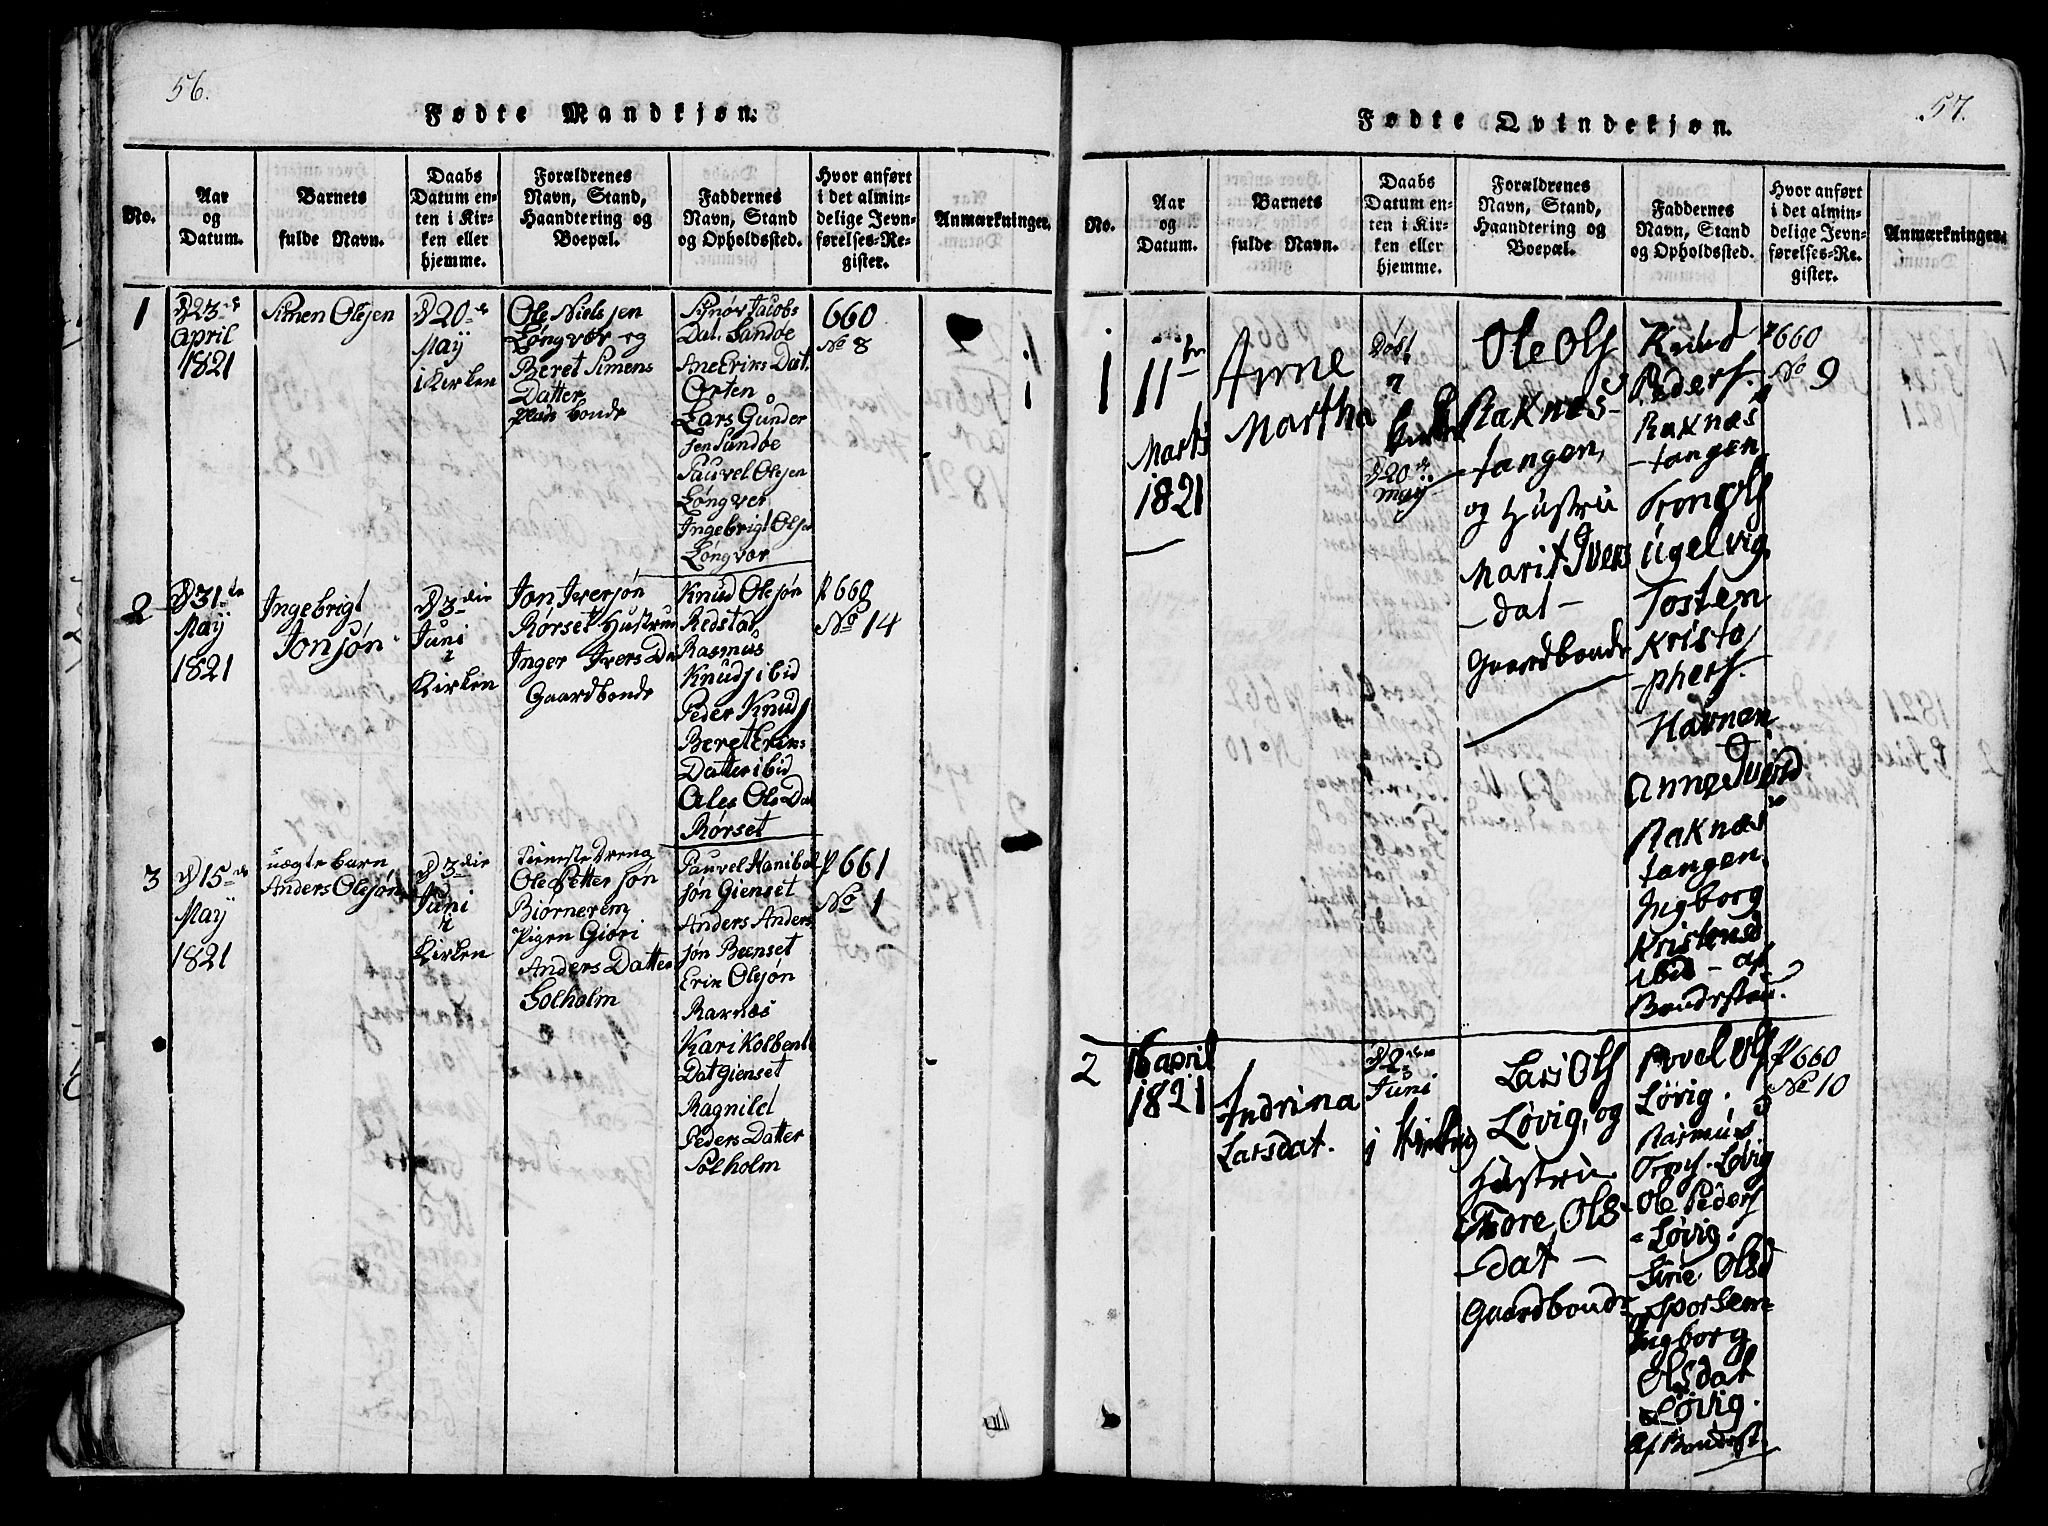 56.
Fødte Mandkjøn.
No.
Aar
og
Datum.
Barnets
fulde Navn.
Daabs
Datum en-
ten i Kir-
ken eller
hjemme.
Forældrenes
Navn, Stand,
Haandtering og
Boepæl.
Faddernes
Navn, Stand
og Opholdssted.
Hvor anført
i det almin-
delige Jevn-
førelses-Re-
gister.
Anmærkninger.
1
D 23de
April
1821
Simen Olsjen
D 20de
May
i Kirken
Ole Nielsjen
Longvær og
Beret Simens
Datter
bonde
Jacobs
Dat. Sandøe
Ane Eriks Dat.
Orten
Lars Gunder
sen Sandøe
Pauvel Olsjen
Longver
Ingebrigt Olsjen
Longvær
660
No 8
2
D 31te
May
1821
Ingebrigt
Jonsjøn
D 3die
Juni
i
Kirken
Jon Iversjøn
Rørset Hustrue
Inger Ivers Da
Gaardbonde
Knud Olesjøn
Redstad
Rasmus
Knuds ibid
Peder Knuds
Beret Eriks
Datter ibid
Ales Ols Dat
Rørset
P 660
No 14
3
D 15de
May
1821
uægte barn
Anders Olesjøn
D 3die
Juni
i
Kirken
Tieneste Dreng
Ole Petter søn
Biørnerem
Pigen Giøri
Anders Datter
Solholm
Pauvel Hanibal
søn Gienset
Anders Anders
søn Beenset
Erik Olesjøn
Raknæs
Kari Kolbent
Dat Gienset
Ragnild
Peders Datter
Solholm
P 661
No 1
57.
Fødte Qvindekjøn.
No.
Aar
og
Datum.
Barnets
fulde Navn.
Daabs
Datum en-
ten i Kir-
ken eller
hjemme.
Forældrenes
Navn, Stand,
Haandtering og
Boepæl.
Faddernes
Navn, Stand
og Opholdssted.
Hvor anført
i det almin-
delige Jevn-
førelses-Re-
gister.
Anmærkninger.
1
11te
Marts
1821
Anne
Martha
Døbt
i
D 20de
may
Ole Ols
Raknes-
tangen,
og Hustru
Marit Ivers
- dat -
Gaardbonde
Knud
Peders.
Raknæs
- tangen
Trons Ols
Ugelvig.
Tosten
Kristo
- phers.
Havnen
Anne Iversd
Raknæs
tangen.
Ingborg
Kristensd
ibid - af
Bondestan.
P 660
No 9
2
16 april
1821
Indrina
Larsdat.
D 2den
Juni
i Kirken
Lars Ols
Løvig, og
Hustrue
Thore Ols
- dat -
Gaardbonde
Povel Ols
Løvig.
Rasmus
Løvig
Ole Peders
- Løvig.
Sirie Olsd
Sporsem-
Ingborg
Olsdat
Løvig.
Af Bondest
P 660
No 10